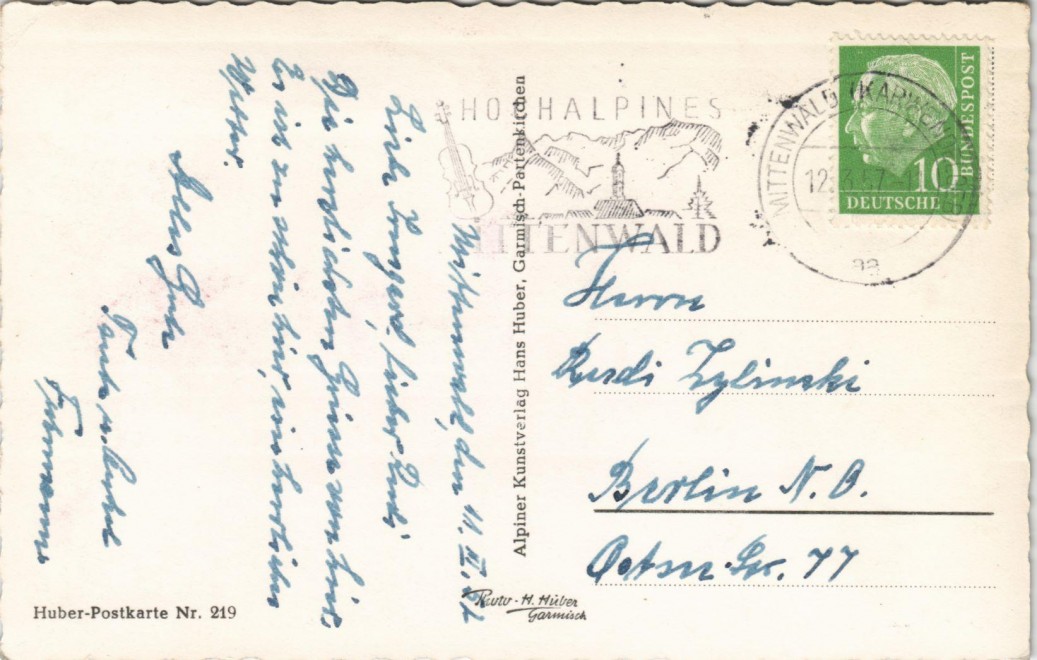 Mittenwald, den 11. III. 57
Liebe Irmgard, lieber Rudi
Die herzlichsten Grüsse von hier.
Es ist sehr schön hier, ein herrliches
Wetter.
Alles Gute
Tante u. Onkel
Fuhrmann
HOCHALPINES
MITTENWALD
MITTENWALD (KARWENDEL)
12.3.57
aa
10
BUNDESPOST
DEUTSCHE
Herrn
Rudi Zylinski
Berlin N.O.
77
Alpiner Kunstverlag Hans Huber, Garmisch-Partenkirchen
Huber-Postkarte Nr. 219
Photo-H. Huber
Garmisch